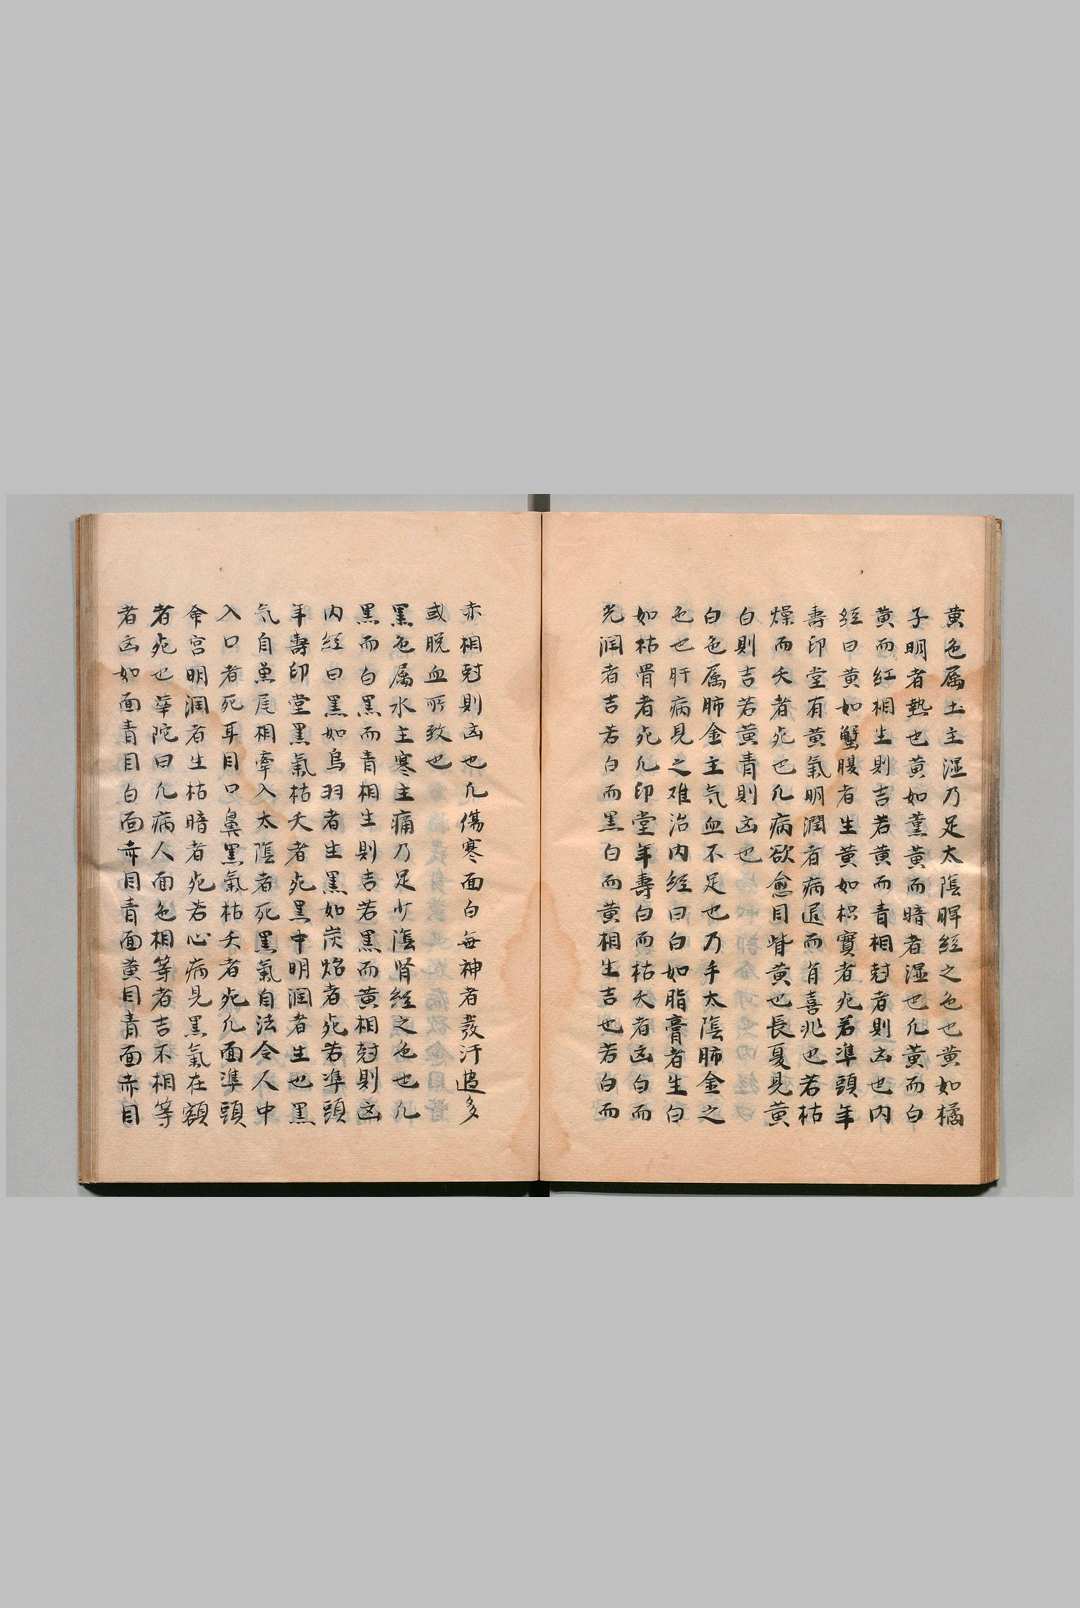 黄色属土主湿乃足太陰脾経之色也黄如橘
子明者熱也黄如薫黄而暗者湿也凡黄而白
黄而紅相生則吉若黄而青相尅者則凶也内
経曰黄如蟹腹者生黄如枳實者死若準頭年
壽印堂有黄氣明潤者病退而有喜兆也若枯
燥而夭者死也凡病欲愈目眥黄也長夏見黄
白則吉若黄青則凶也
白色属肺金主气血不足也乃手太陰肺金之
色也肝病見之难治内経曰白如脂膏者生白
如枯骨者死凡印堂年壽白而枯夭者凶白而
光潤者吉若白而黒白而黄相生吉也若白而
赤相尅則凶也凡傷寒面白每神者發汗過多
或脱血所致也
黒色属水主寒主痛乃足少陰腎経之色也凡
黒而白黒而青相生則吉若黒而黄相尅則凶
内経曰黒如烏羽者生黒如炭焰者死若準頭
年壽印堂黒氣枯夭者死黒中明潤者生也黒
气自魚尾相牽入太陰者死黒氣自法令人中
入口者死耳目口鼻黒氣枯夭者死凡面準頭
命宮明潤者生枯暗者死若心病見黒氣在額
者死也華陀曰凡病人面色相等者吉不相等
者凶如面青目白面赤目青面黄目青面赤目